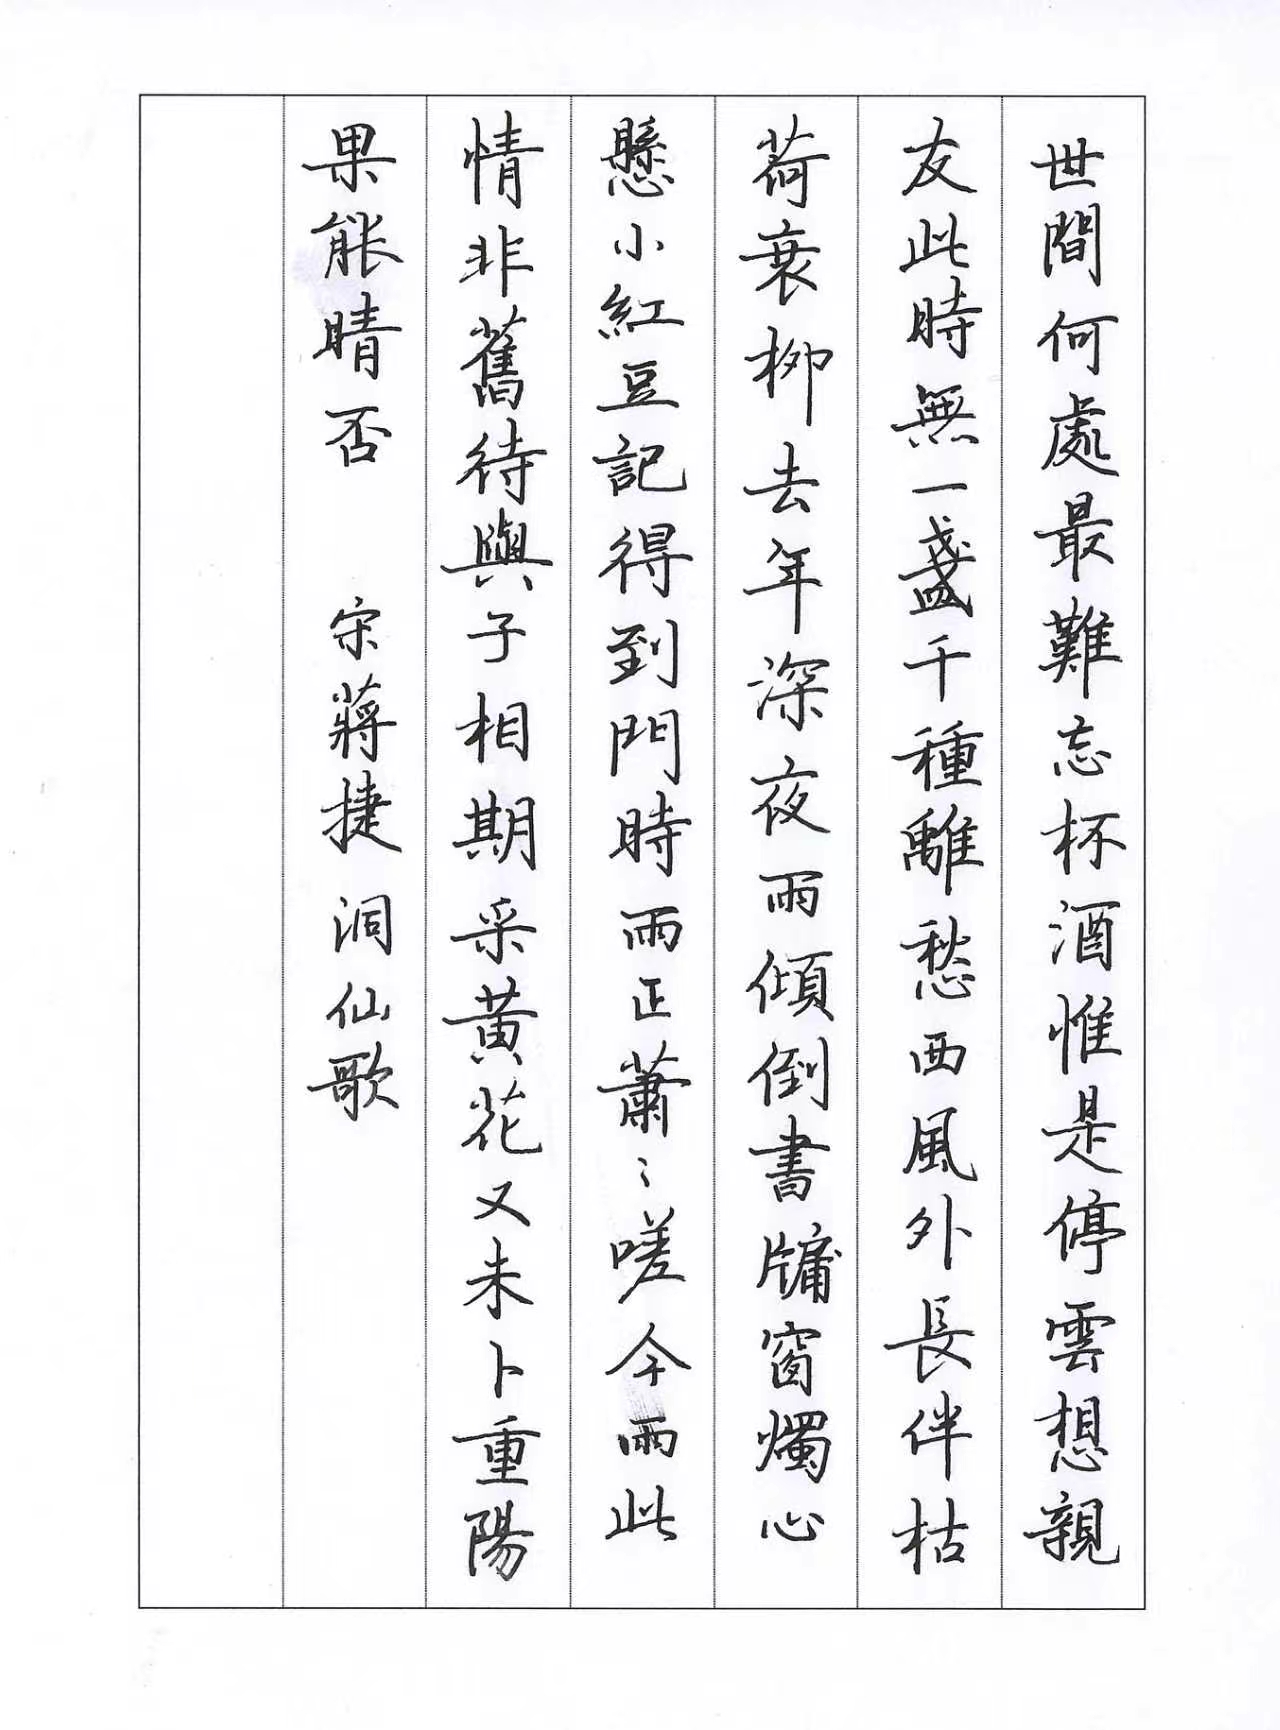 世間何處最難忘杯酒惟是停雲想親
友此時無一盞千種離愁西風外長伴枯
荷衰柳去年深夜雨傾倒書牖窗燭心
懸小紅豆記得到門時雨正蕭〻嗟今雨此
情非舊待與子相期采黃花又未卜重陽
果能晴否 宋蔣捷洞仙歌